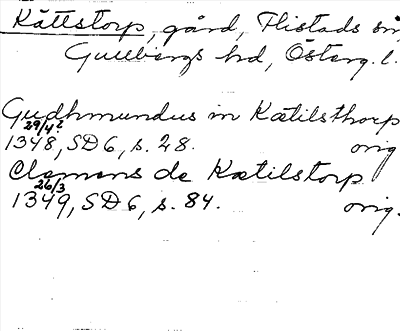 Kättstorp, gård, Flistads sn,
Gullbergs hrd, Österg. l.
Gudhmundus in Kætilsthorp
29/4?
1348, SD6, s. 28. orig
Clemens de Kætilstorp
26/3
1349, SD6, s. 84. orig.